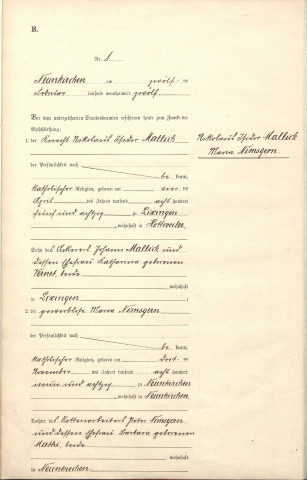 B.
Nr. 1
Neunkirchen am zwölften
Februar tausend neunhundert zwölf.
Vor dem unterzeichneten Standesbeamten erschienen heute zum Zwecke der
Eheschließung:
1. der Knecht Nikolaus Isidor Mallick
der Persönlichkeit nach
be kannt,
katholischer Religion, geboren am vier
April des Jahres tausend acht hundert
fünf und achtzig zu Lixingen
, wohnhaft in Hottweiler,
Sohn des Ackerers Johann Mallick und
dessen Ehefrau Katharina geborenen
beide
wohnhaft
in Lixingen
2. die gewerblose Maria Nimsgern
der Persönlichkeit nach
be kannt,
katholischer Religion, geboren am
November des Jahres tausend acht hundert
neun und achtzig zu Neunkirchen
, wohnhaft in Neunkirchen,
Tochter des Rottenarbeiters Peter Nimsgern
und dessen Ehefrau Barbara geborenen
beide
wohnhaft
in Neunkirchen
Nikolaus Isidor Mallick
Maria Nimsgern.